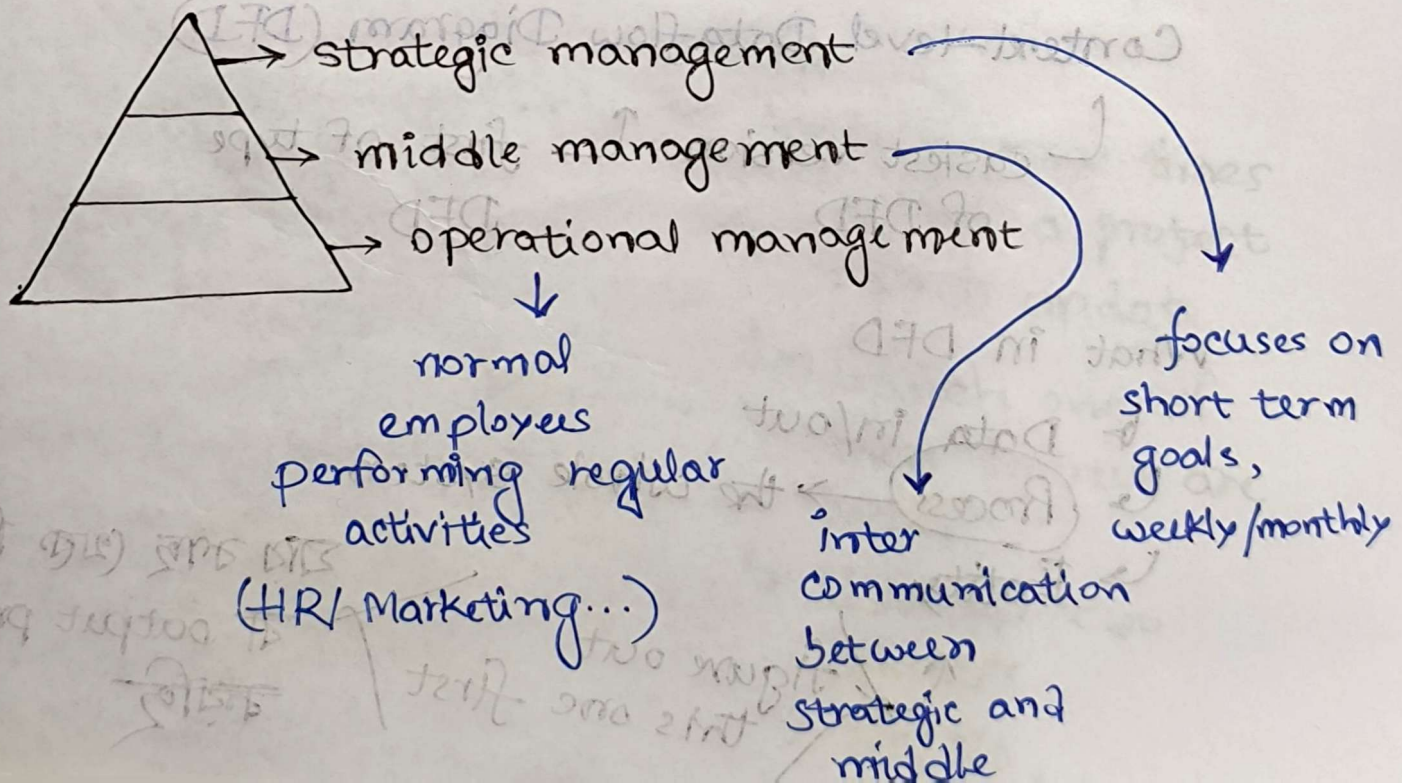 strategic management
middle management
operational management
normal
employees
performing regular
activities
(HR/ Marketing...)
inter
communication
between
strategic and
middle
focuses on
short term
goals,
weekly/monthly